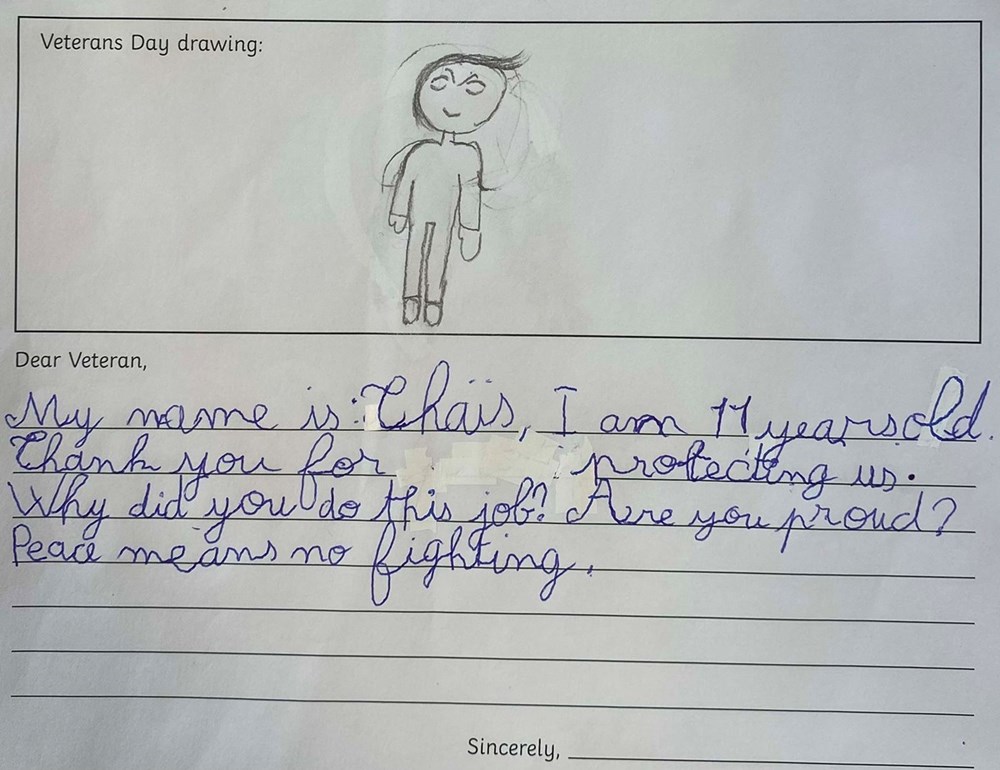 Veterans Day drawing:
Dear Veteran,
My name is: Thaïs, I am 11 years old.
Thank you for protecting us.
Why did you do this job? Are you proud?
Peace means no fighting.
Sincerely,